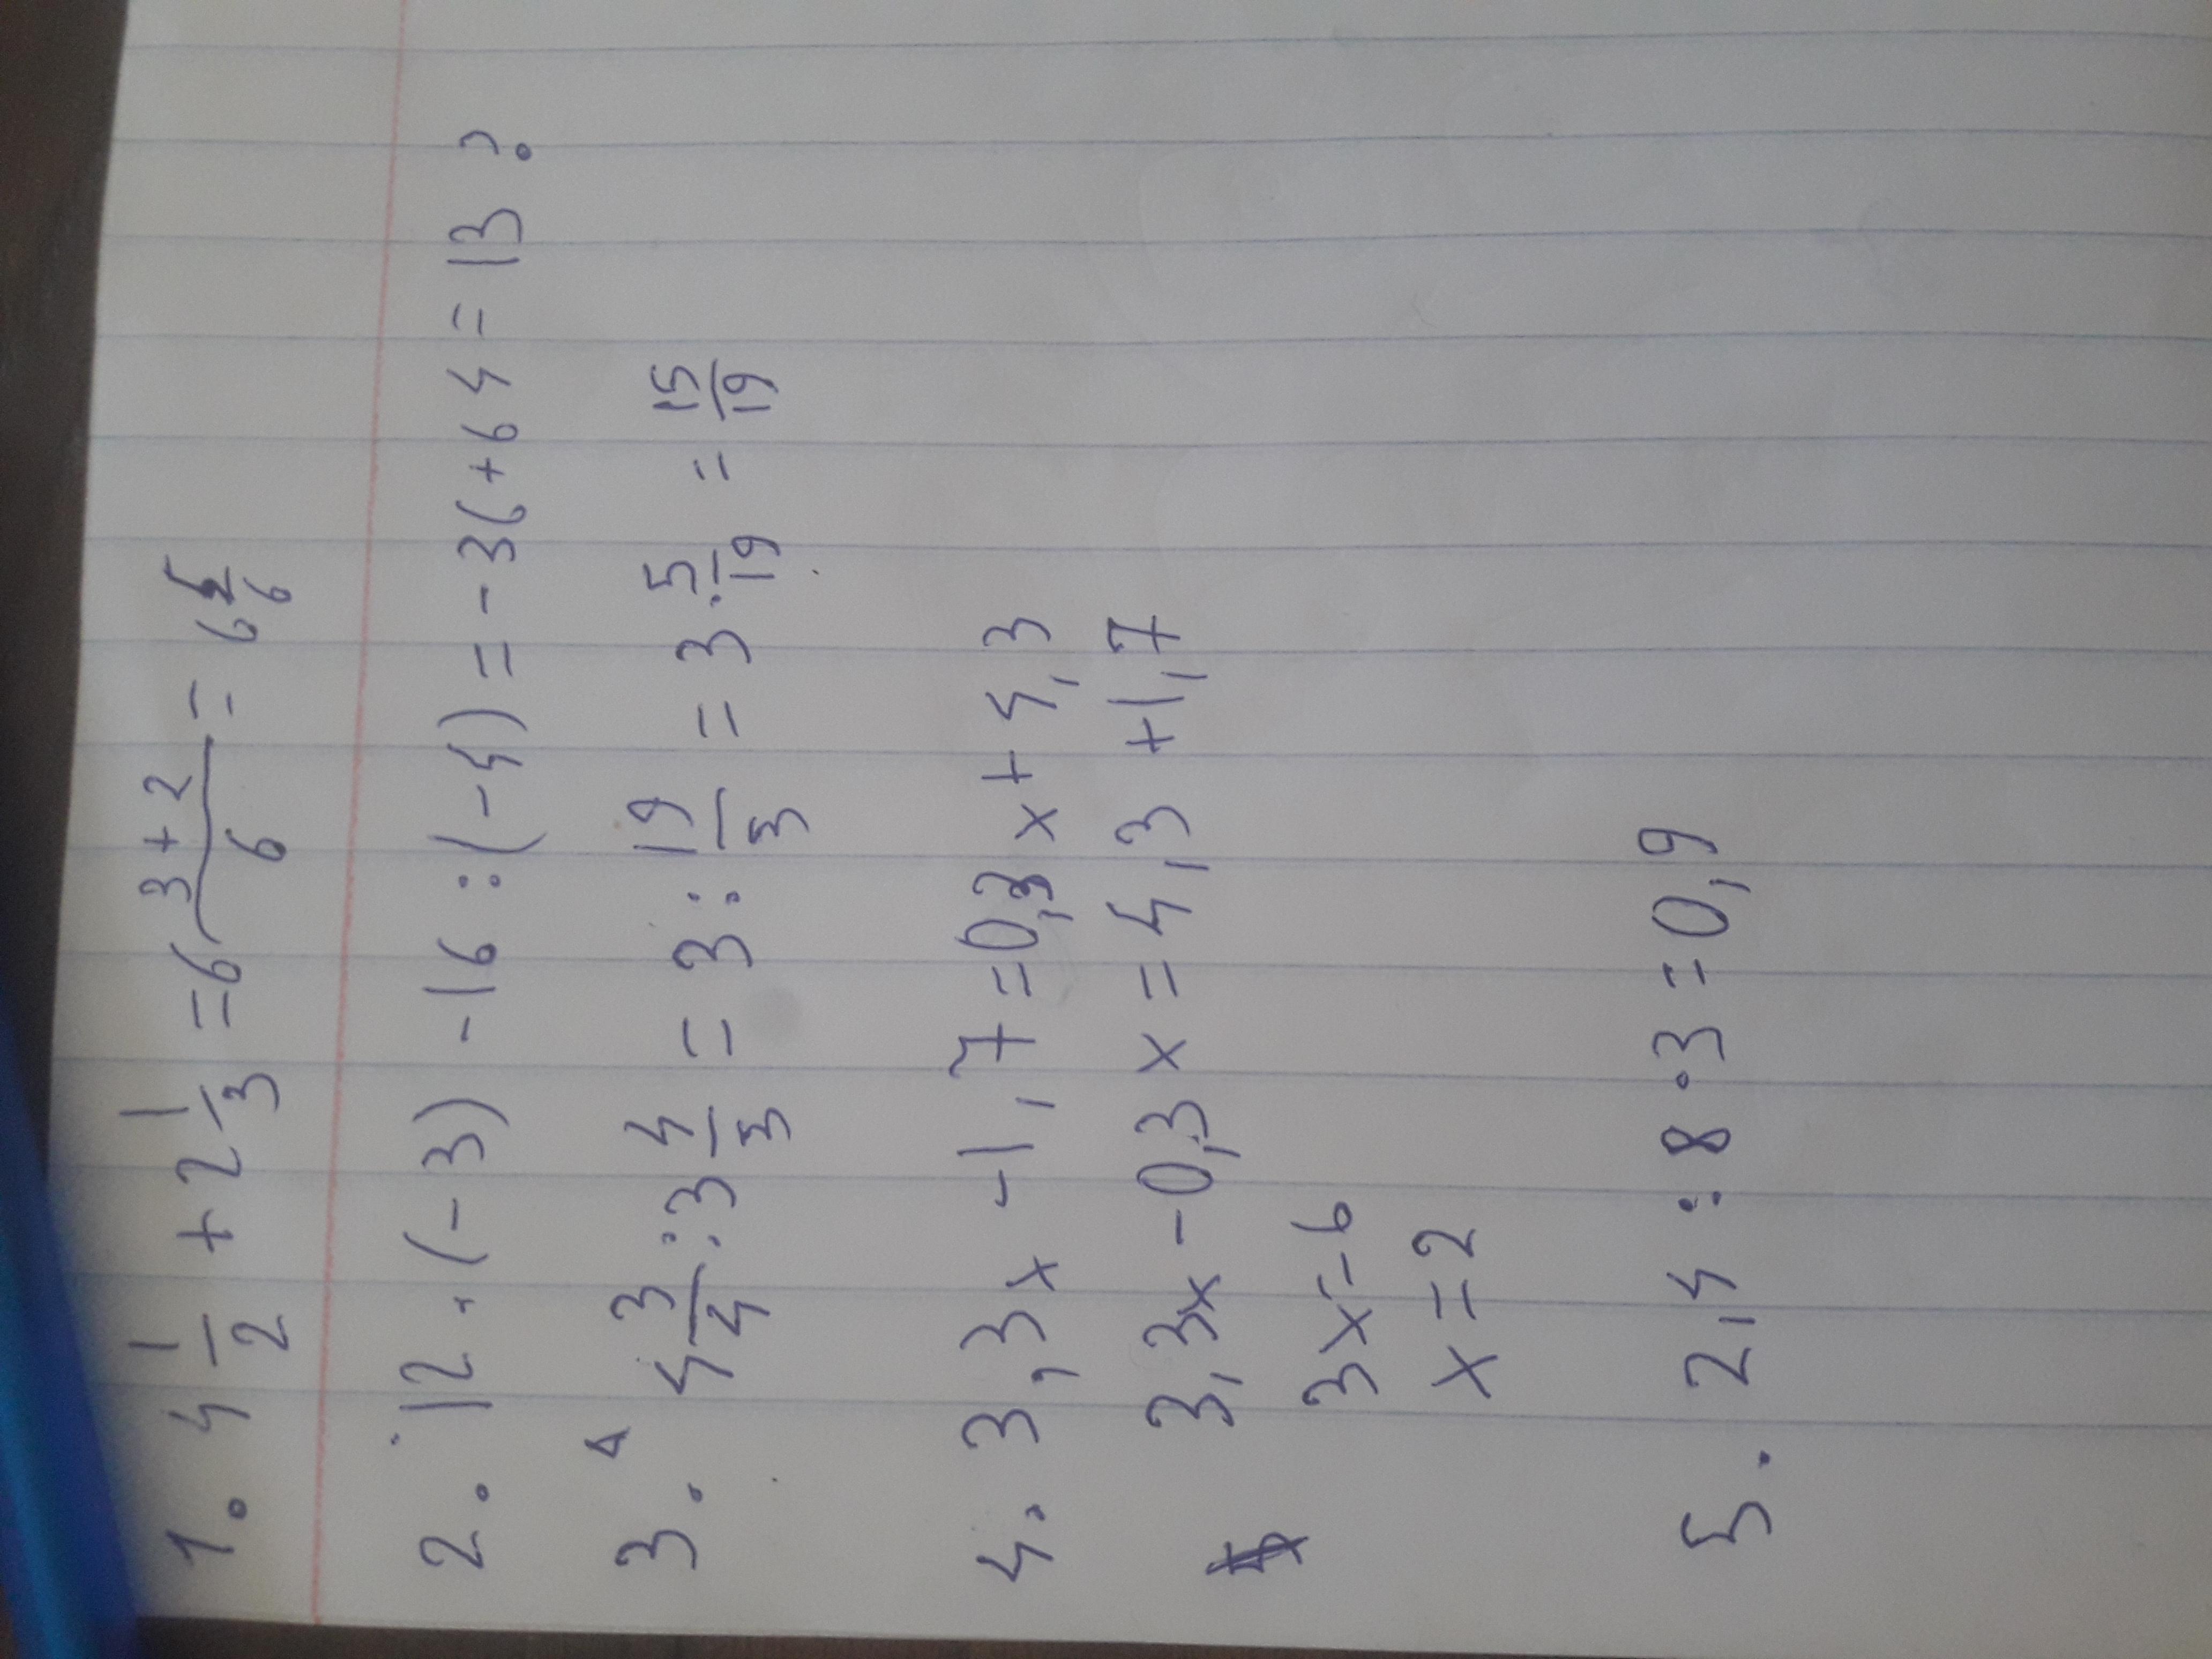 1. 4 1/2 + 2 1/3 = 6 (3+2)/6 = 6 5/6
2. 12 · (-3) - 16 : (-4) = -36 + 64 = 13 ?
3. 4 3/4 : 3 4/3 = 3 : 19/3 = 3 · 5/19 = 15/19
4. 3,3x - 1,7 = 0,3x + 4,3
3,3x - 0,3x = 4,3 + 1,7
3x = 6
x = 2
5. 2,4 : 8 · 3 = 0,9